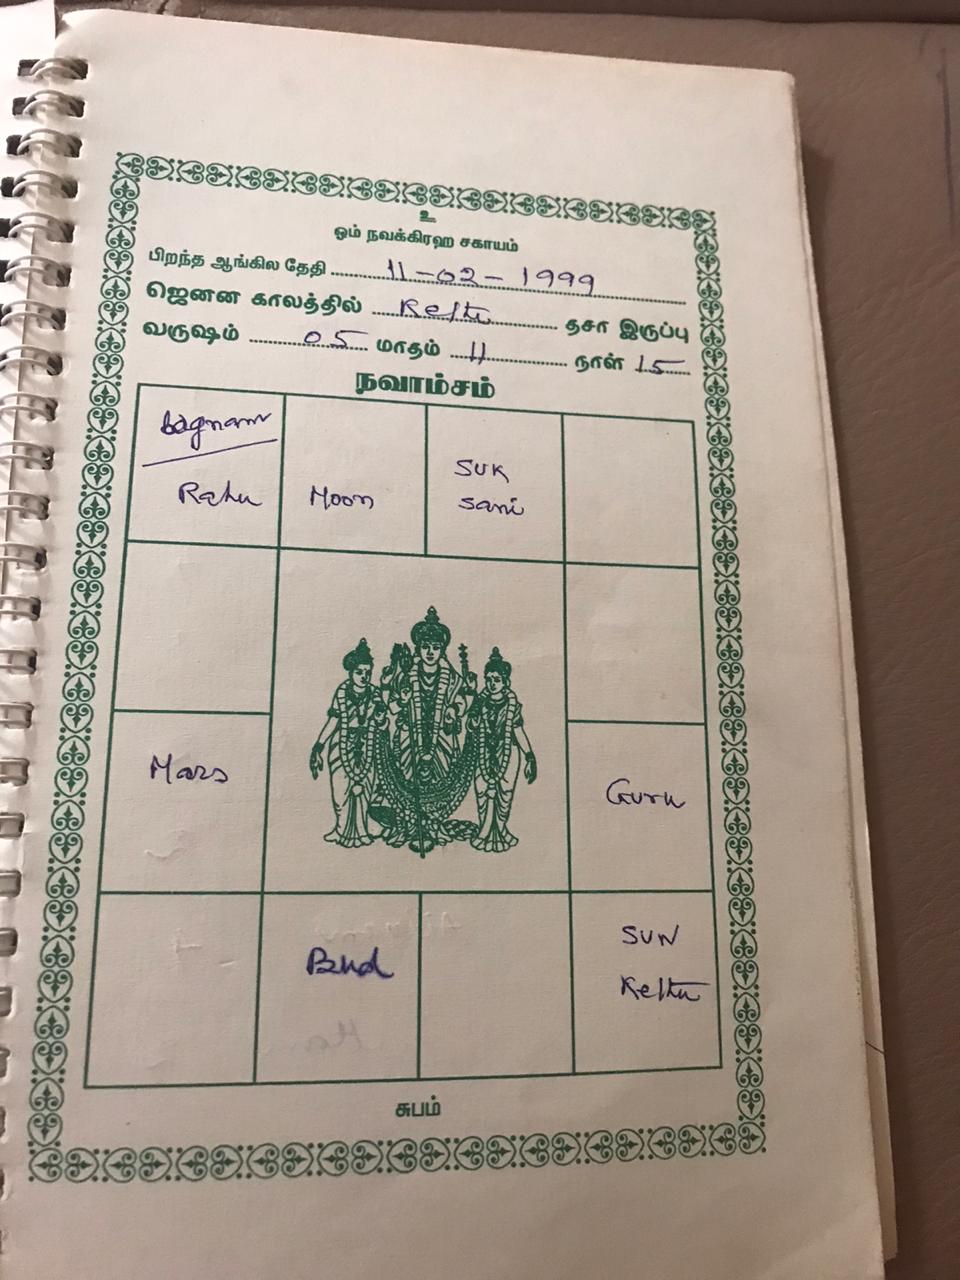 உ
ஓம் நவக்கிரஹ சகாயம்
பிறந்த ஆங்கில தேதி 11-02-1999
ஜெனன காலத்தில் Kethu தசா இருப்பு
வருஷம் 05 மாதம் 11 நாள் 15
நவாம்சம்
Lagnam
Rahu
Moon
SUK
Sani
Mars
Guru
Bud
SUN
Kethu
சுபம்